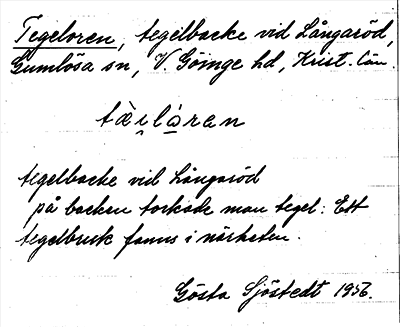 Tegeloren, tegelbacke vid Långaröd,
Gumlösa sn, V. Göinge hd, Krist. län.
tàı̯lå̀ren
tegelbacke vid Långaröd
på backen torkade man tegel. Ett
tegelbruk fanns i närheten.
Gösta Sjöstedt 1956.